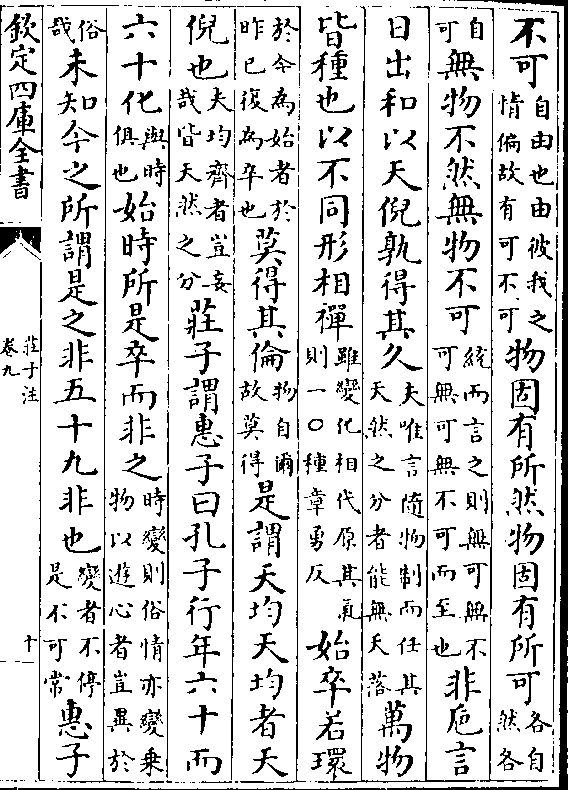 不可自由也由彼我之情偏故有可不可物固有所然物固有所可各自然各
自可無物不然無物不可統而言之則無可無不可無可無不可而至也非巵言
日出和以天倪孰得其久夫唯言隨物制而任其天然之分者能無夭落萬物
皆種也以不同形相禪雖變化相代原其氣則一〇種章勇反始卒若環
於今為始者於昨已復為卒也莫得其倫物自爾故莫得是謂天均天均者天
倪也夫均齊者豈妄哉皆天然之分莊子謂惠子曰孔子行年六十而
六十化與時俱也始時所是卒而非之時變則俗情亦變乗物以遊心者豈異於
俗哉未知今之所謂是之非五十九非也變者不停是不可常惠子
欽定四庫全書
莊子注
卷九
十